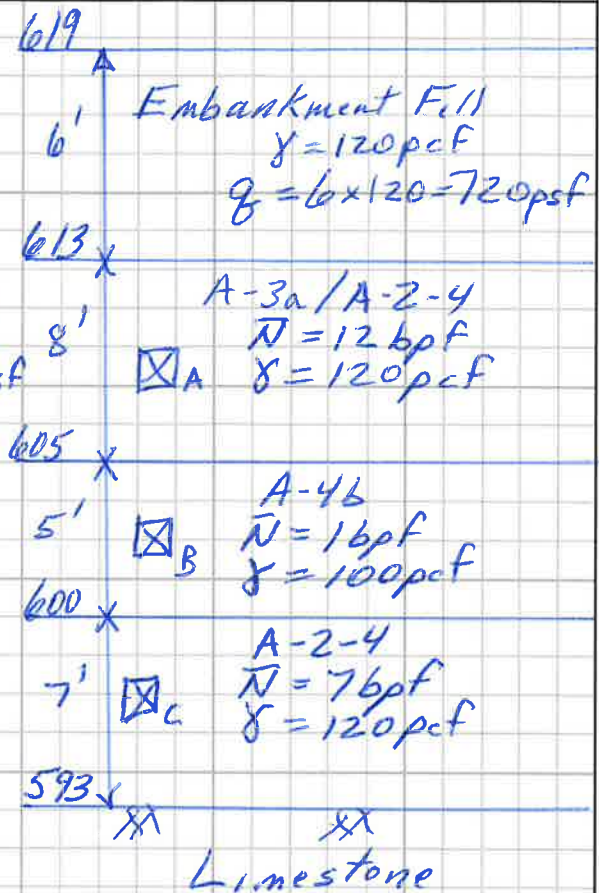 619
Embankment Fill
6'
γ = 120pcf
q = 6x120=720psf
613
A-3a/A-2-4
N̄ = 12 bpf
8'
A γ = 120pcf
605
A-4b
5'
N̄ = 1bpf
B γ = 100pcf
600
A-2-4
7'
N̄ = 7bpf
C γ = 120pcf
593
Limestone